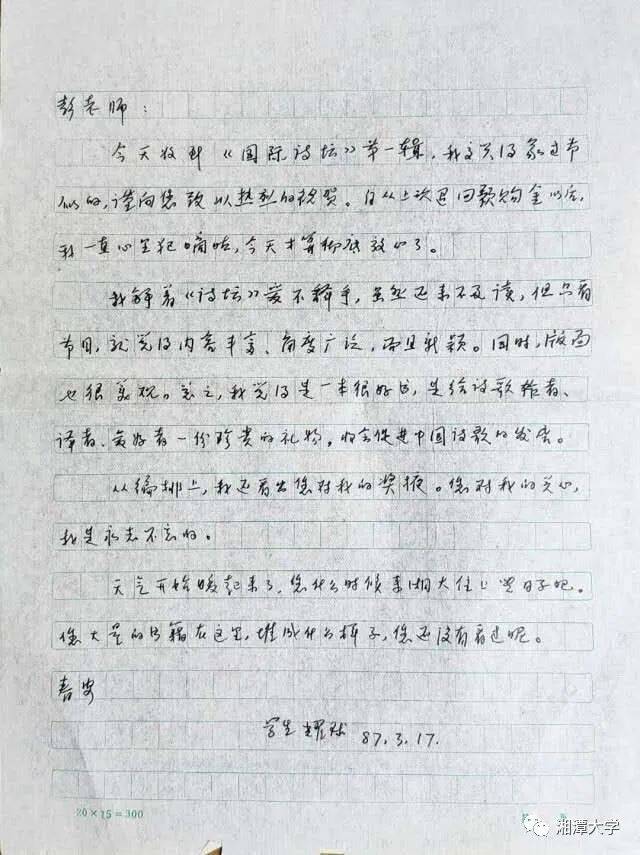 彭老师：
今天收到《国际诗坛》第一辑，我竟觉得象过节
似的，谨向您致以热烈的祝贺。自从上次退回款购金以后，
我一直心里犯嘀咕，今天才算彻底放心了。
我解着《诗坛》爱不释手，虽然还来不及读，但只看
节目，就觉得内容丰富、角度广泛，而且新颖。同时，版面
也很美观。总之，我觉得是一本很好书，是给诗歌作者、
译者、爱好者一份珍贵的礼物，将会促进中国诗歌的发展。
从编排上，我还看出您对我的奖掖。您对我的关心，
我是永志不忘的。
天气开始暖起来了，您什么时候来湘大住上些日子吧。
您大量的书籍在这里，堆成什么样子，您还没有看过呢。
春安
学生 耀球 87.3.17.
20×15=300
湘潭大学